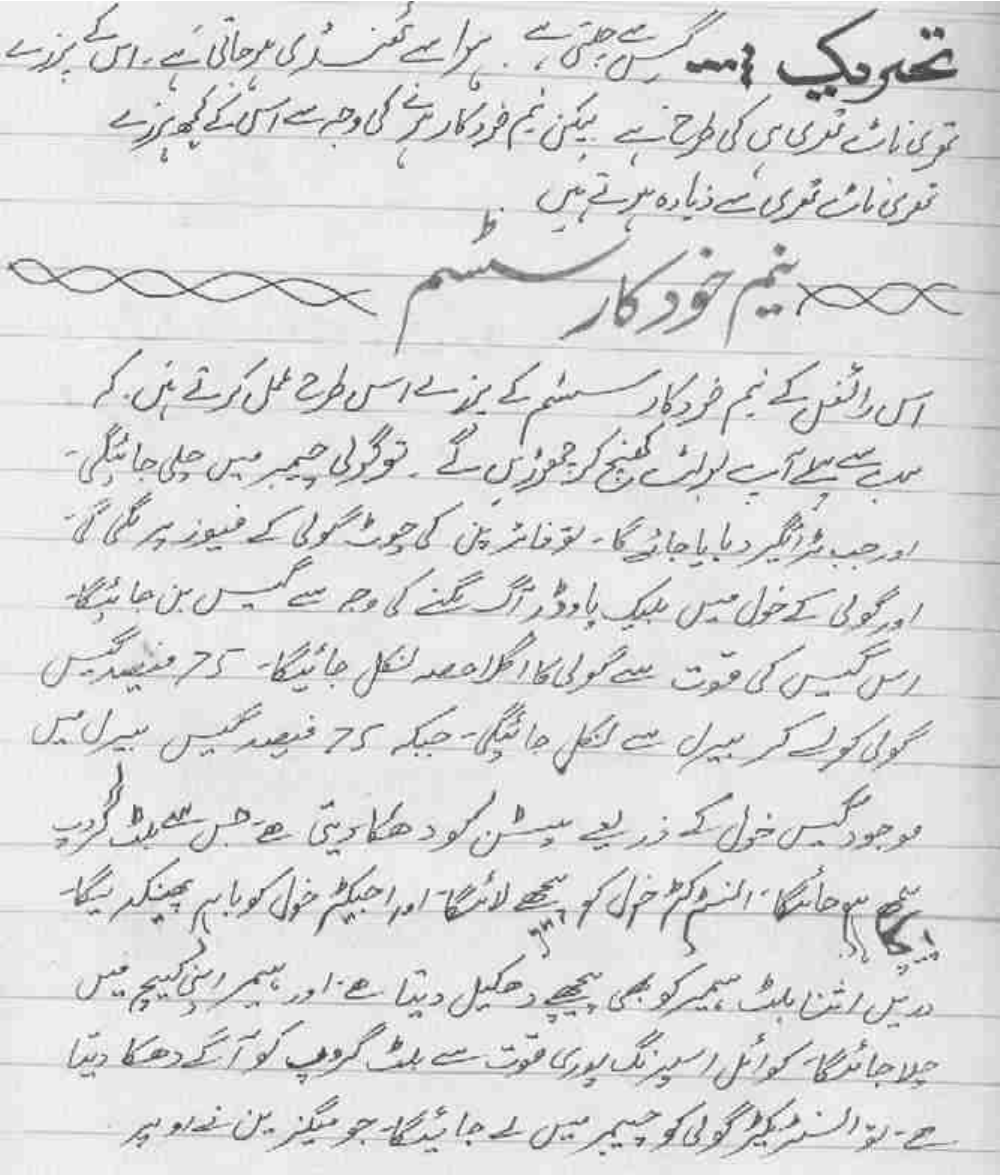 تحریک :... گیس سے چلتی ہے ۔ ہوا سے ٹھنڈی ہو جاتی ہے ۔ اس کے پرزے
تھری ناٹ تھری ہی کی طرح ہے لیکن نیم خود کار ہونے کی وجہ سے اس کے کچھ پرزے
تھری ناٹ تھری سے زیادہ ہوتے ہیں
نیم خود کار سسٹم
اس رائفل کے نیم خود کار سسٹم کے پرزے اس طرح عمل کرتے ہیں ۔ کہ
سب سے پہلے آپ بولٹ کھینچ کر چھوڑیں گے ۔ تو گولی چیمبر میں چلی جائیگی ۔
اور جب ٹرائیگر دبایا جائے گا ۔ تو فائر پن کی چوٹ گولی کے فیوز پر لگی گی
اور گولی کے خول میں بلیک پاوڈر آگ لگنے کی وجہ سے گیس بن جائیگا ۔
اس گیس کی قوت سے گولی کا اگلا حصہ نکل جائیگا ۔ 75 فیصد گیس
گولی کو لے کر بیرل سے نکل جائیگی ۔ جبکہ 25 فیصد گیس بیرل میں
موجود گیس خول کے ذریعے پسٹن کو دھکا دیتی ہے ۔ جس سے بلٹ گروپ
پیچھے ہو جائیگا ۔ انسٹرکٹر خول کو پیچھے لائیگا ۔ اور اجیکٹر خول کو باہر پھینک دیگا ۔
دریں اثنا بلٹ ہیمر کو بھی پیچھے دھکیل دیتا ہے ۔ اور ہیمر اپنی کیچ میں
چلا جائیگا ۔ کوائل اسپرنگ پوری قوت سے بلٹ گروپ کو آگے دھکا دیتا
ہے ۔ تو انسٹریکٹر گولی کو چیمبر میں لے جائیگا ۔ جو میگزین نے اوپر